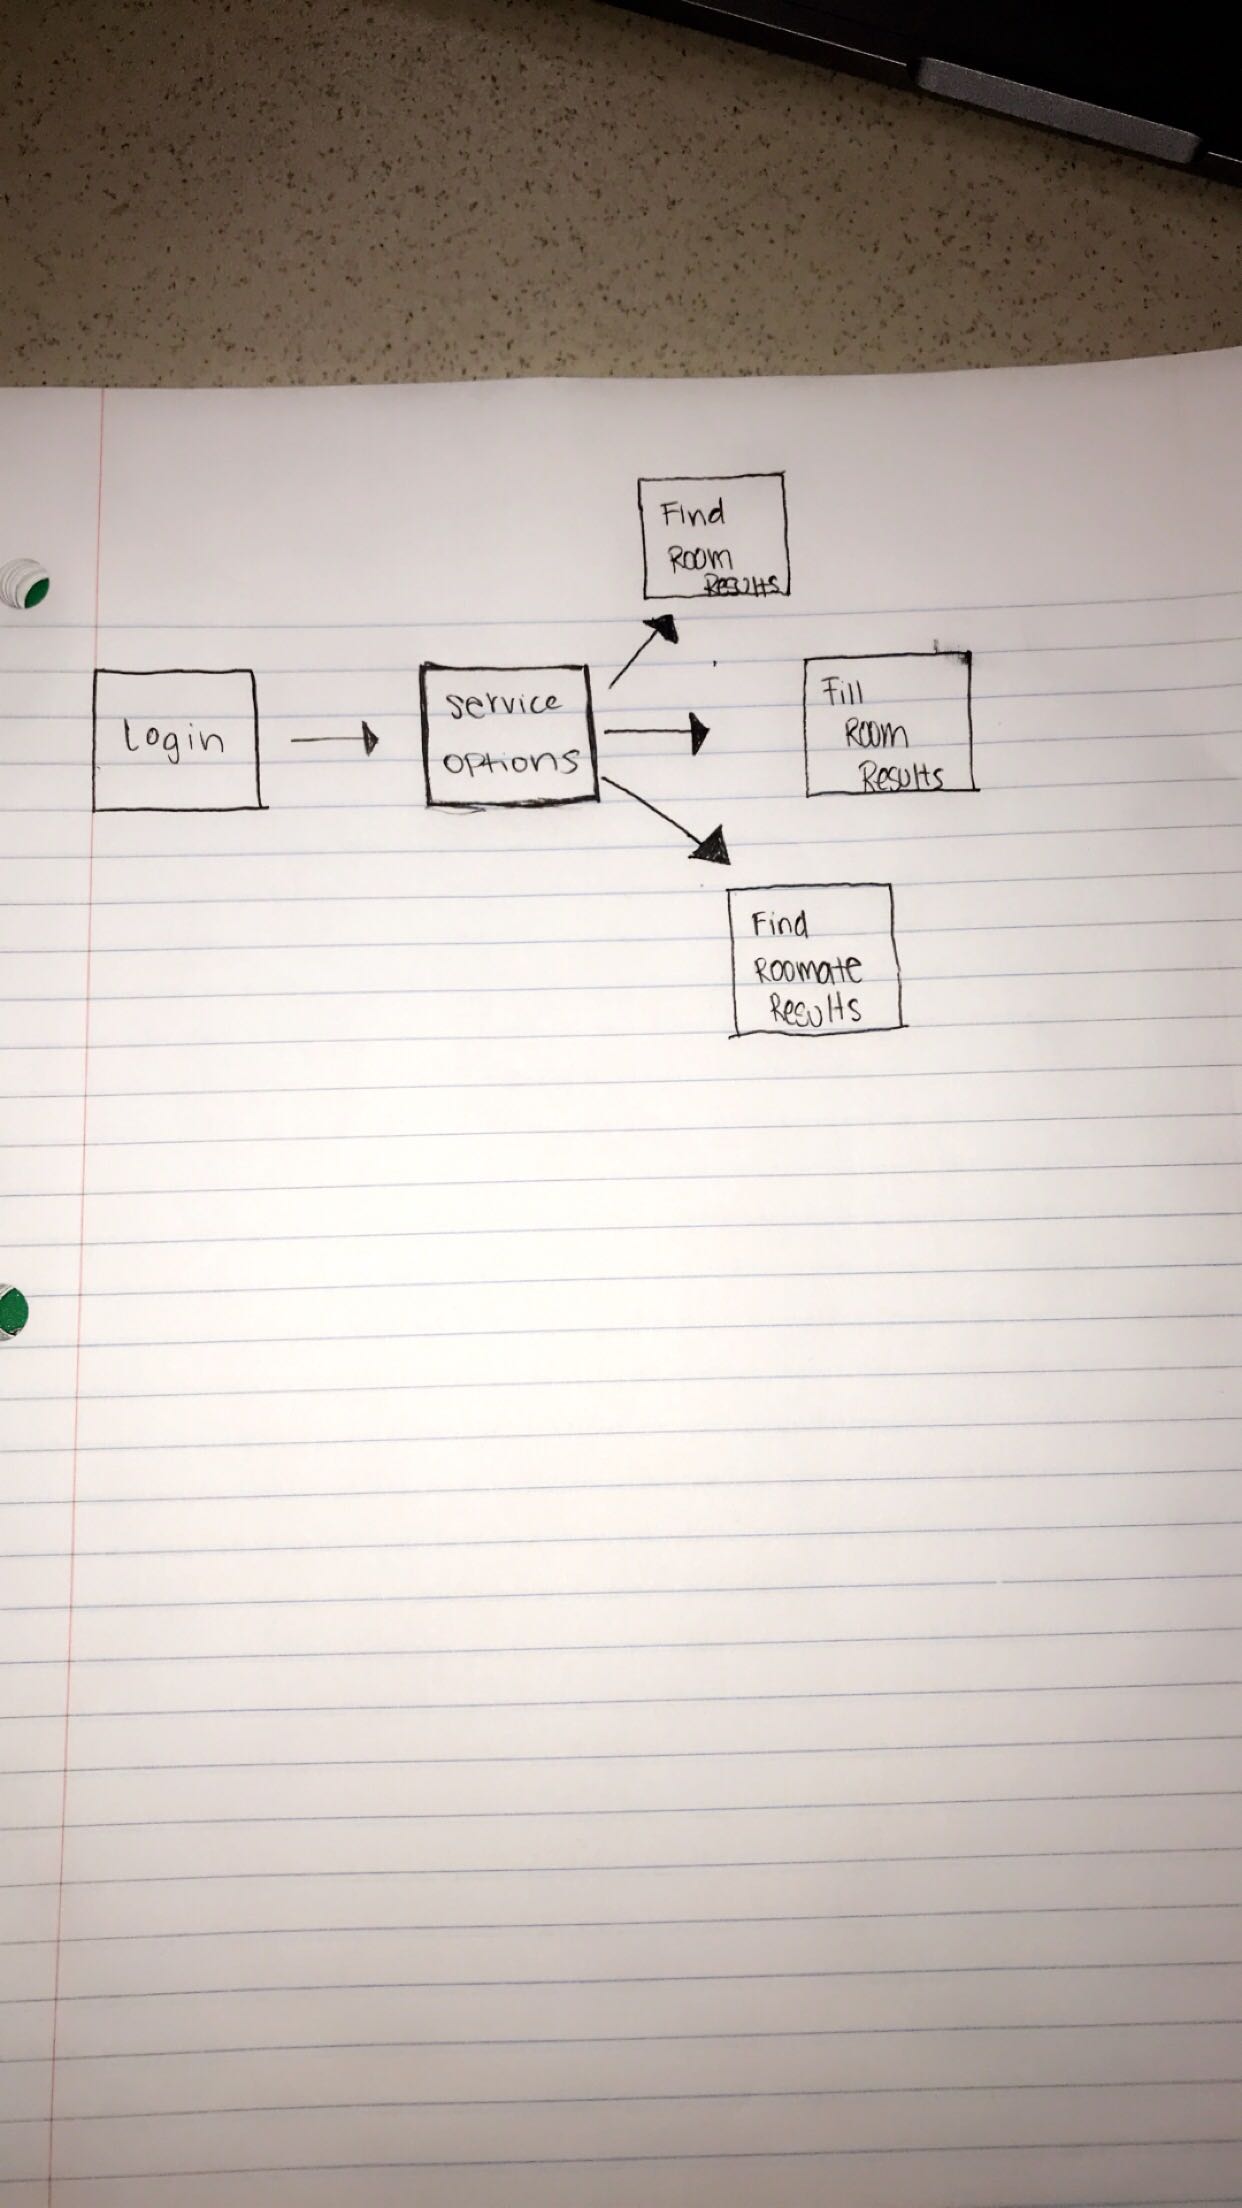 Login
service
options
Find
Room
Results
Fill
Room
Results
Find
Roomate
Results